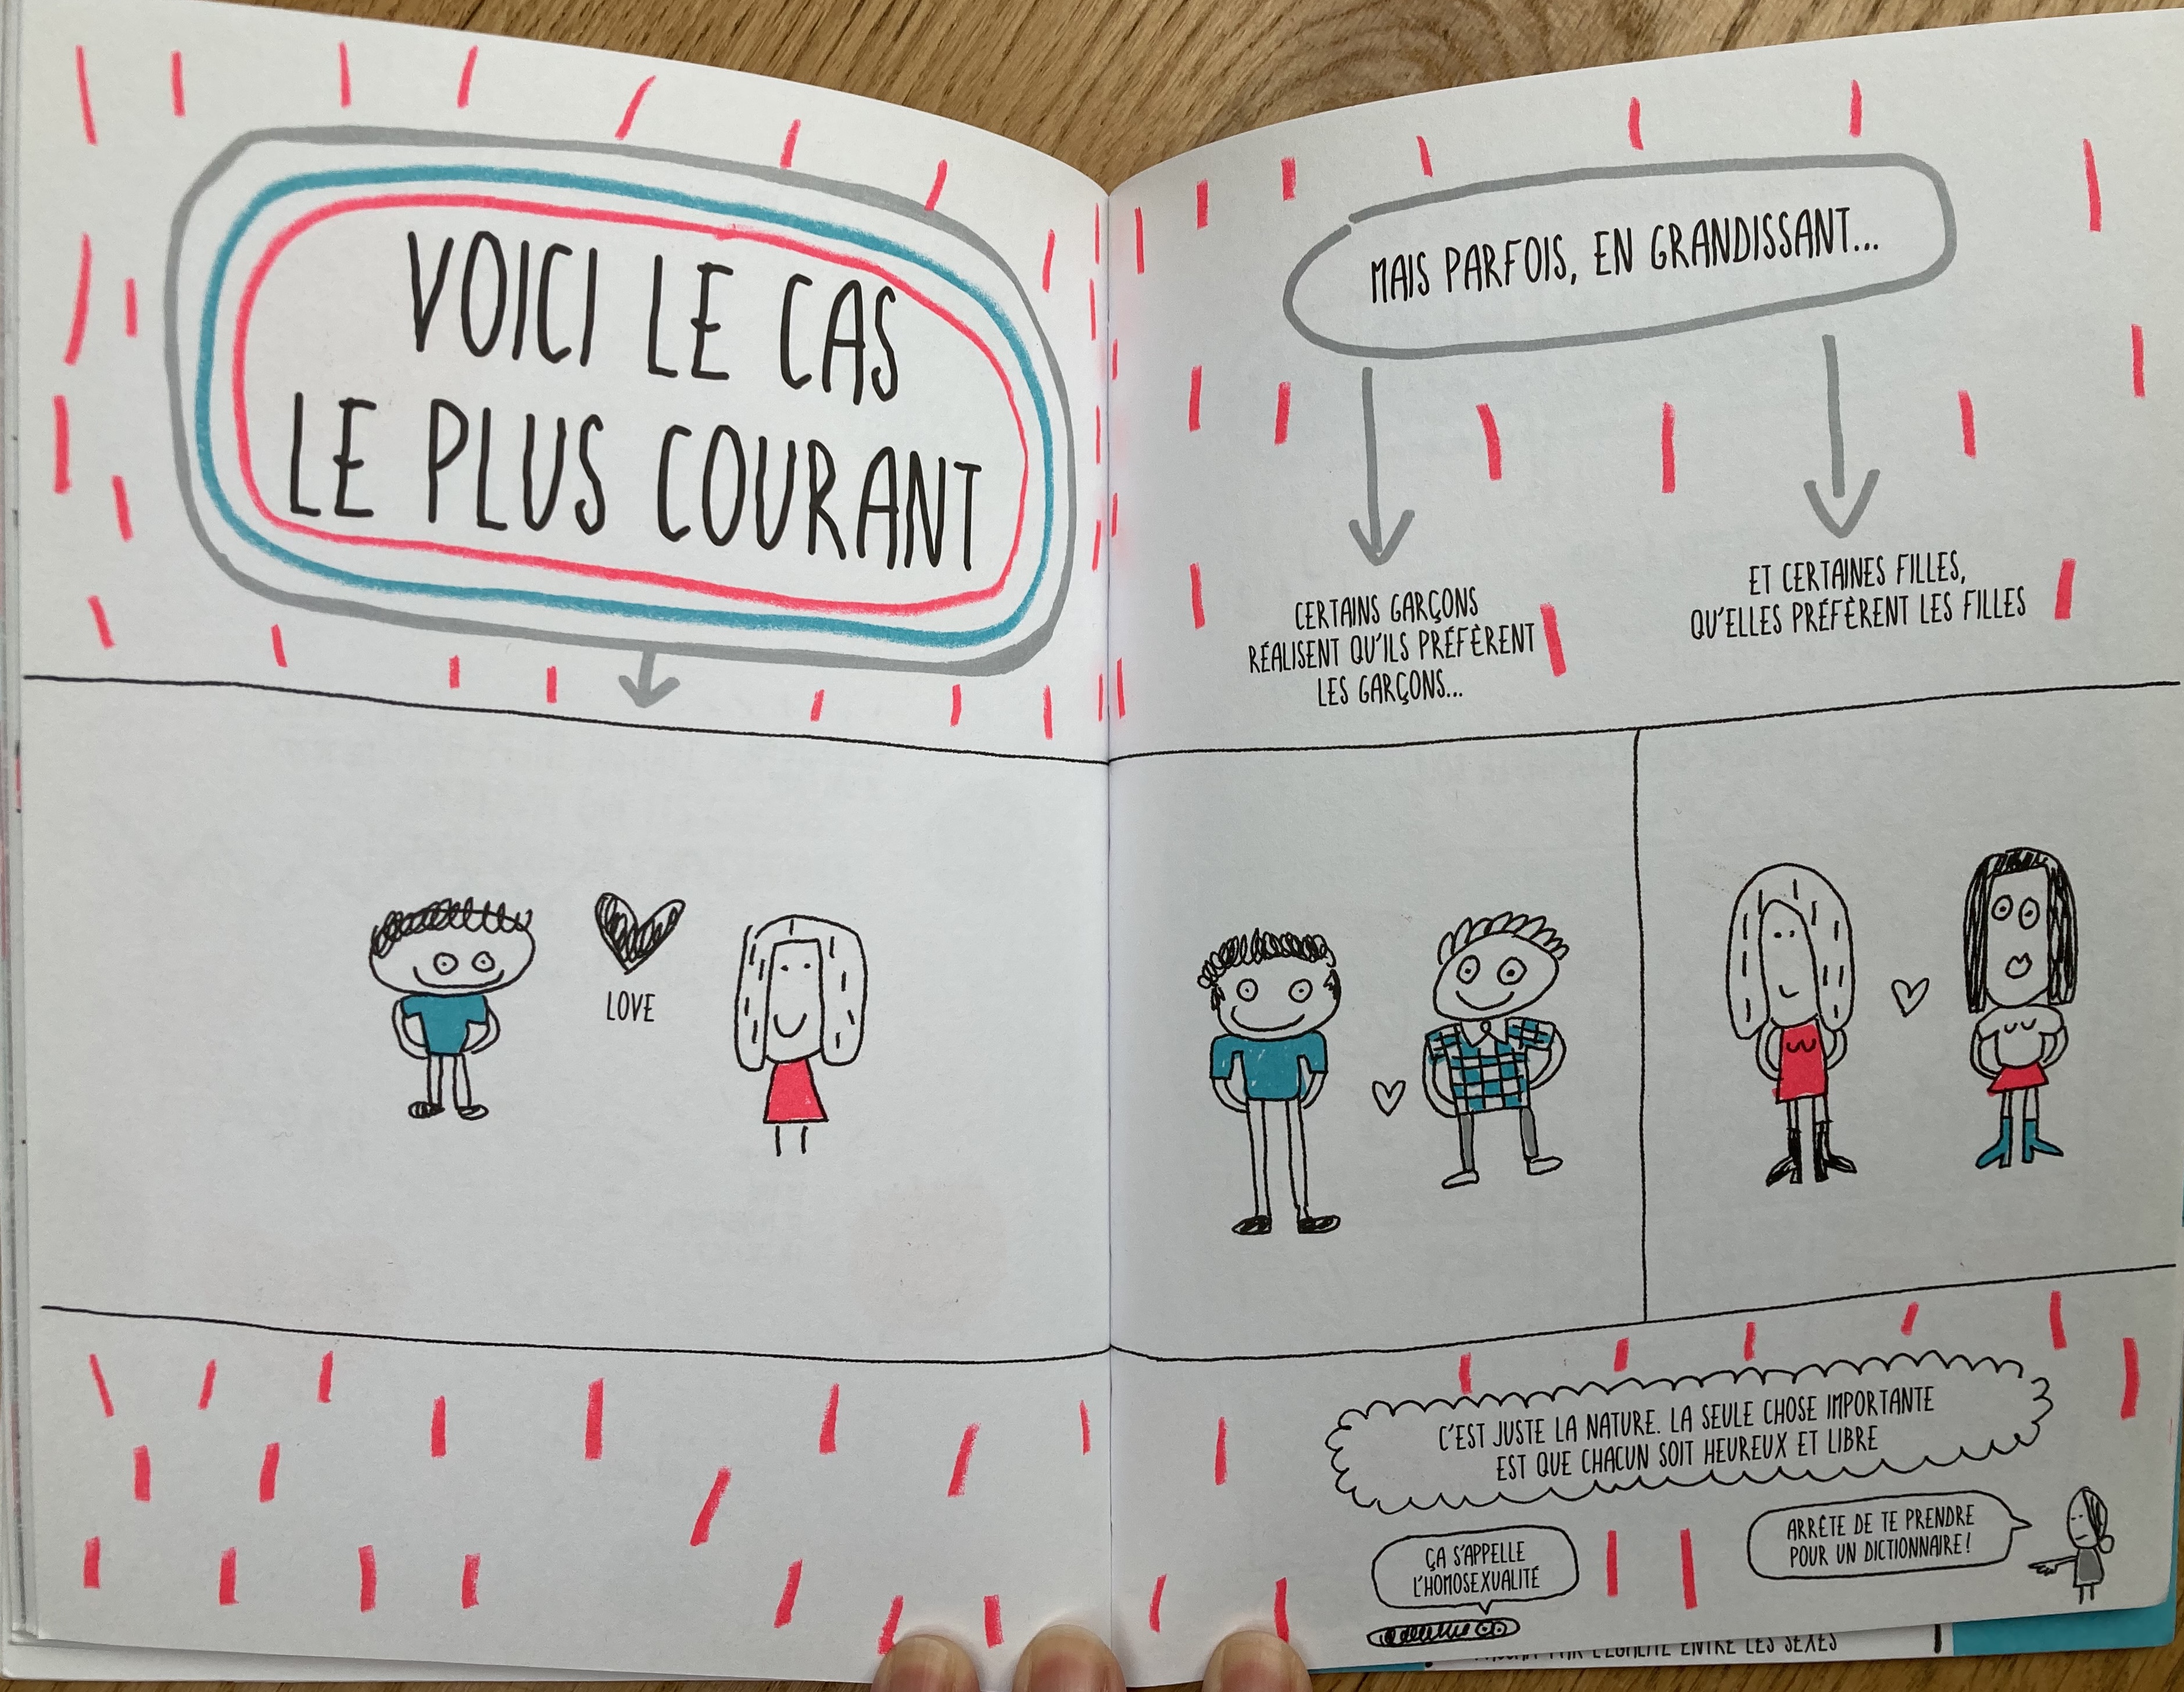 VOICI LE CAS
LE PLUS COURANT
LOVE
MAIS PARFOIS, EN GRANDISSANT...
CERTAINS GARÇONS
RÉALISENT QU'ILS PRÉFÈRENT
LES GARÇONS...
ET CERTAINES FILLES,
QU'ELLES PRÉFÈRENT LES FILLES
C'EST JUSTE LA NATURE. LA SEULE CHOSE IMPORTANTE
EST QUE CHACUN SOIT HEUREUX ET LIBRE
ÇA S'APPELLE
L'HOMOSEXUALITÉ
ARRÊTE DE TE PRENDRE
POUR UN DICTIONNAIRE!
PAR L'ÉGALITÉ ENTRE LES SEXES